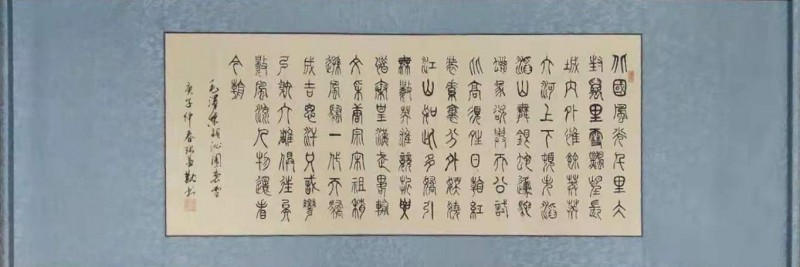 北國風光千里冰
封萬里雪飄望長
城內外惟餘莽莽
大河上下頓失滔
滔山舞銀蛇原馳
蠟象欲與天公試
比高須晴日看紅
裝素裹分外妖嬈
江山如此多嬌引
無數英雄競折腰
惜秦皇漢武略輸
文采唐宗宋祖稍
遜風騷一代天驕
成吉思汗只識彎
弓射大雕俱往矣
數風流人物還看
今朝
毛澤東詞沁園春雪
庚子仲春書